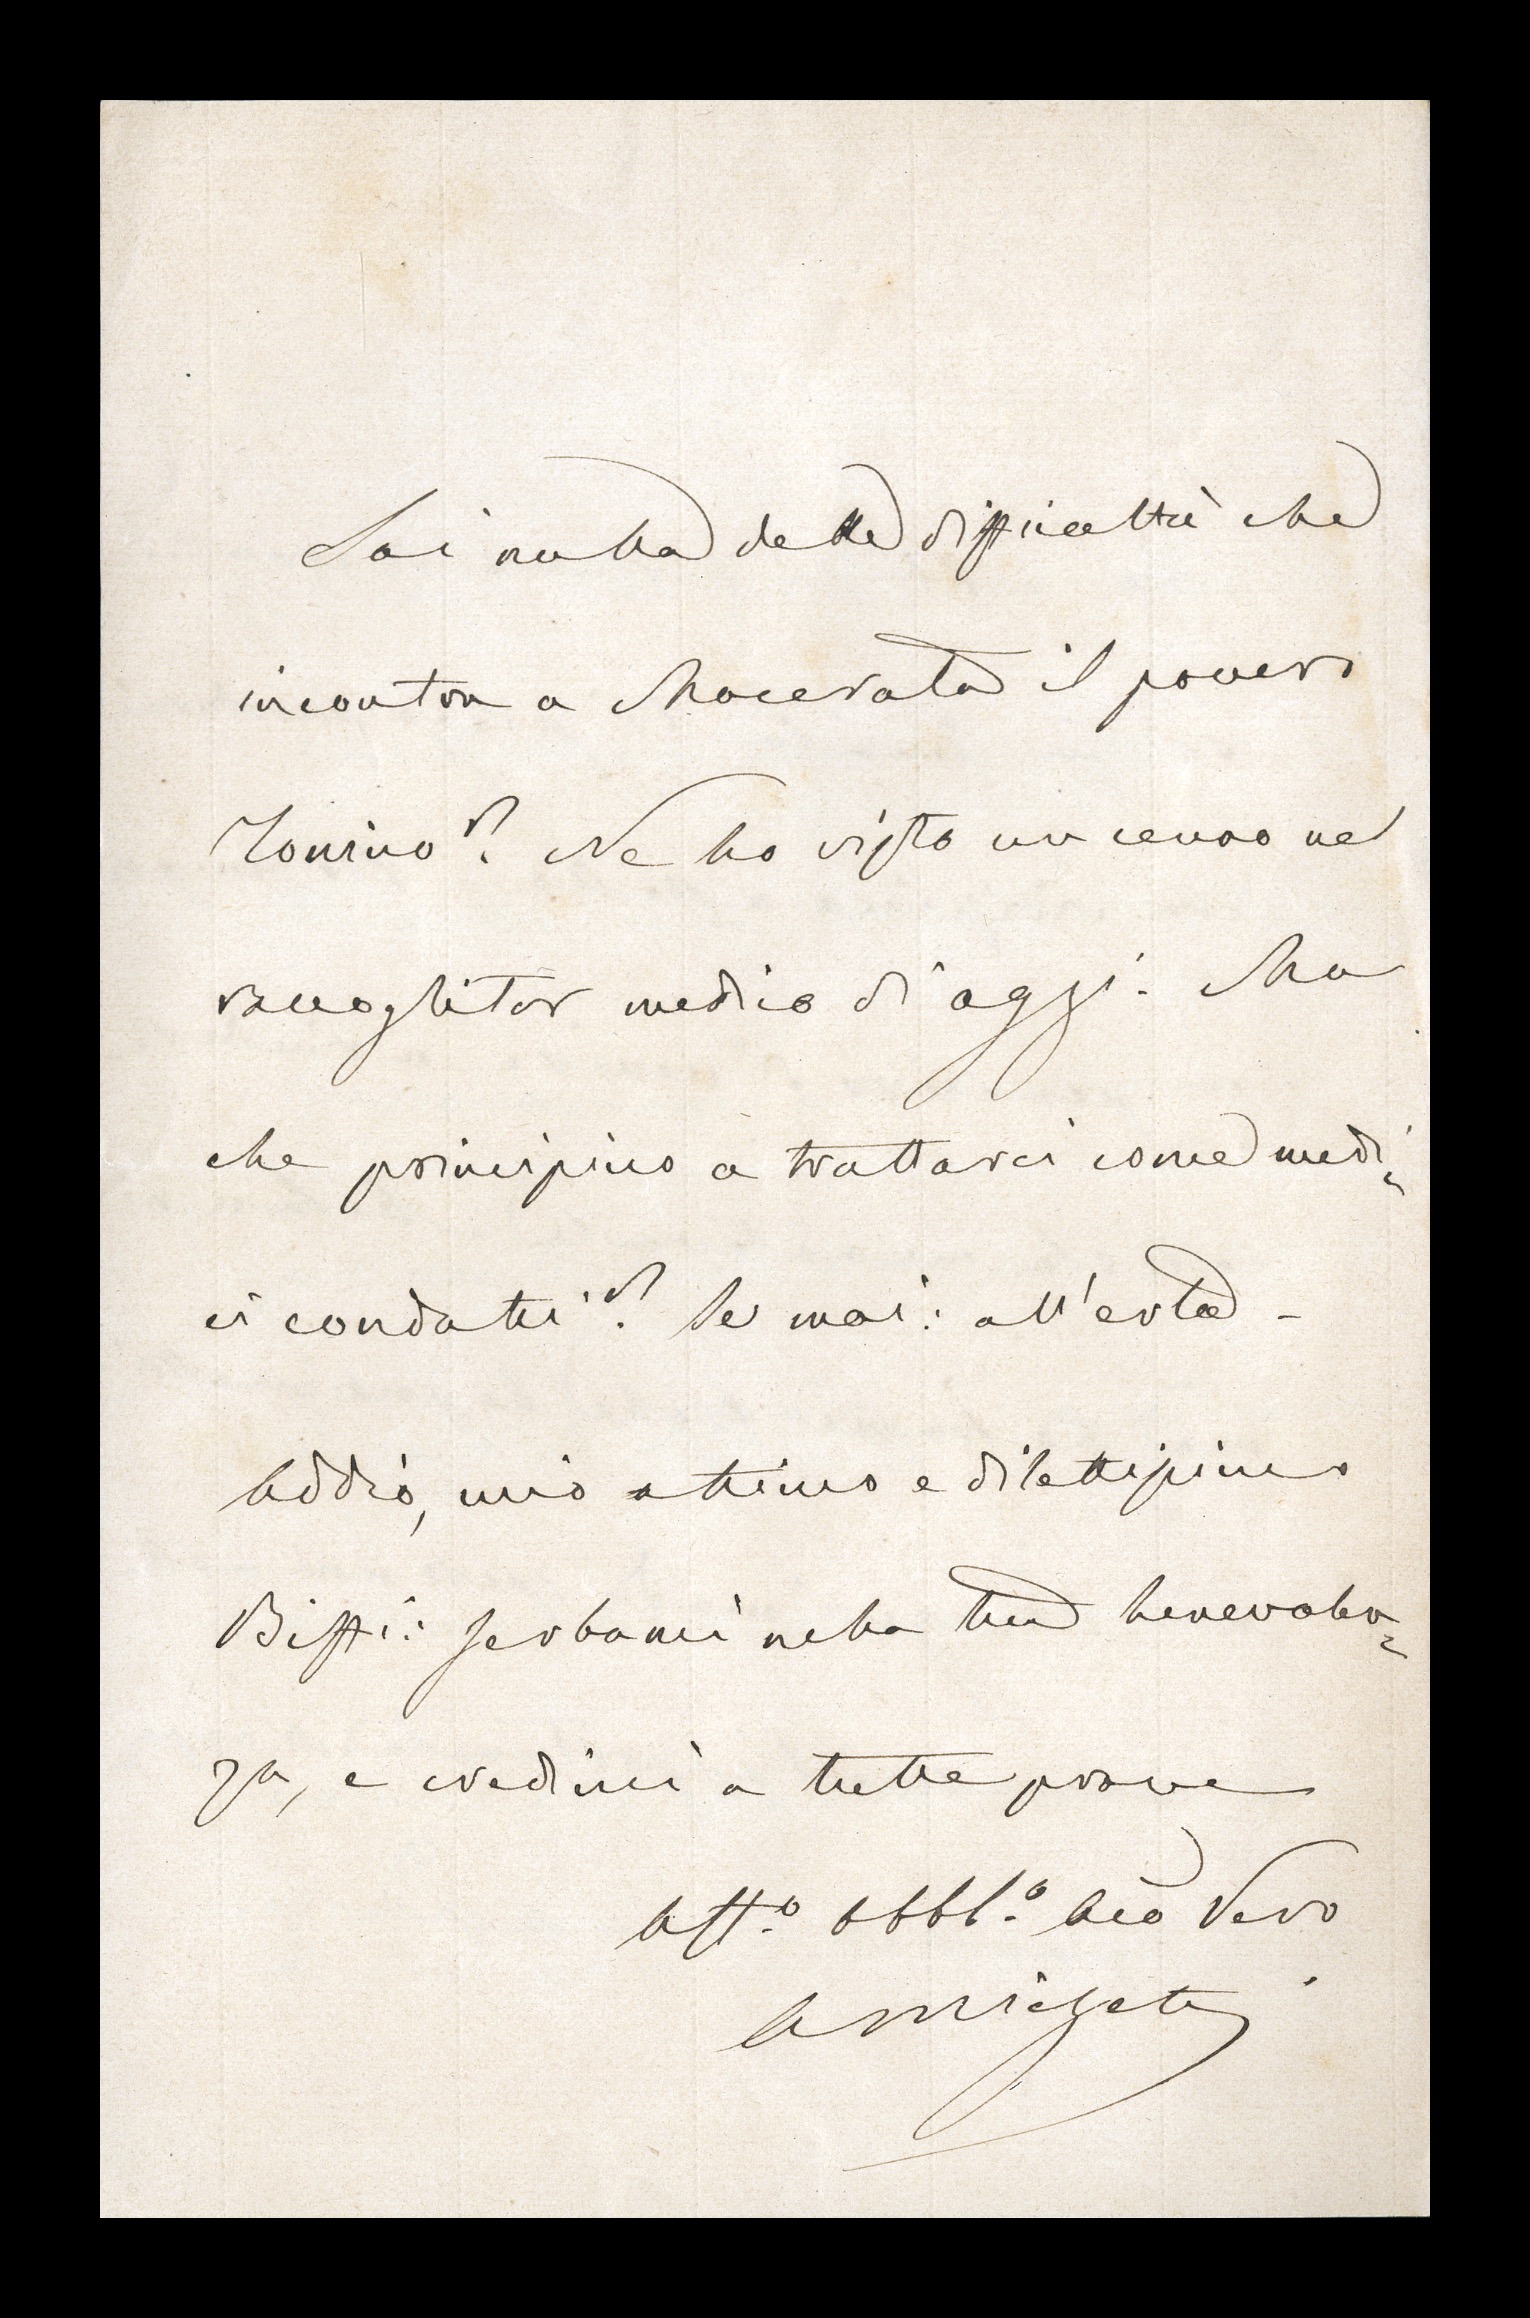 Sai nulla delle difficoltà che
incontra a Macerata il povero
Tonino? Ne ho visto un cenno nel
raccoglitor medico di oggi. Ma
che principino a trattarci come medi-
ci condotti? Se mai: all'erta -
Addio, mio ottimo e dilettissimo
Biffi: serbami nella tua benevolen-
za, e credimi a tutte prove
Aff.o obbl.o Vero
A Verga